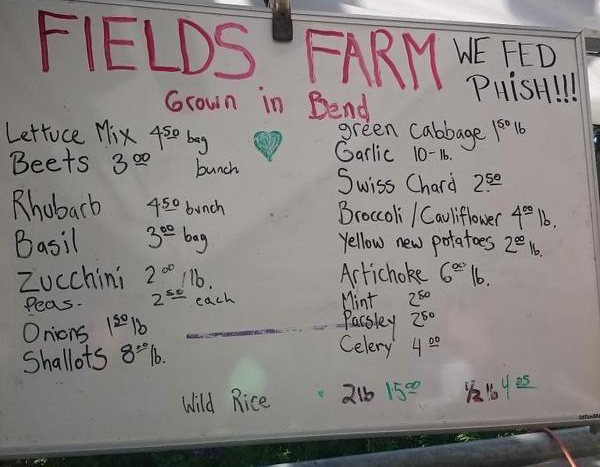 FIELDS FARM
WE FED
PHiSH!!!
Grown in Bend
Lettuce Mix 4 50 bag
Beets 3 00 bunch
Rhubarb 4 50 bunch
Basil 3 00 bag
Zucchini 2 00 /lb.
Peas. 2 50 each
Onions 1 50 lb
Shallots 8 00 lb.
green cabbage 1 50 lb
Garlic 10- lb.
Swiss Chard 2 50
Broccoli / Cauliflower 4 00 lb.
Yellow new potatoes 2 00 lb.
Artichoke 6 00 lb.
Mint 2 50
Parsley 2 50
Celery 4 00
Wild Rice 2lb 15 00 1/2 lb 4 25